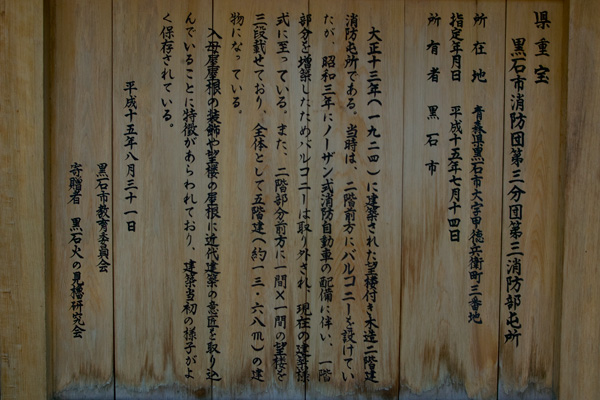 県重宝
黒石市消防団第三分団第三消防部屯所
所在地　青森県黒石市大字甲徳兵衛町三番地
指定年月日　平成十五年七月十四日
所有者　黒石市
大正十三年(一九二四)に建築された望楼付き木造二階建
消防屯所である。当時は、二階前方にバルコニーを設けてい
たが、昭和三年にノーザン式消防自動車の配備に伴い、一階
部分を増築したためバルコニーは取り外され、現在の建築様
式に至っている。また、二階部分前方に一間×一間の望楼を
三段載せており、全体として五階建(約一三・六八m)の建
物になっている。
入母屋屋根の装飾や望楼の屋根に近代建築の意匠を取り込
んでいることに特徴があらわれており、建築当初の様子がよ
く保存されている。
平成十五年八月三十一日
黒石市教育委員会
寄贈者　黒石火の見櫓研究会